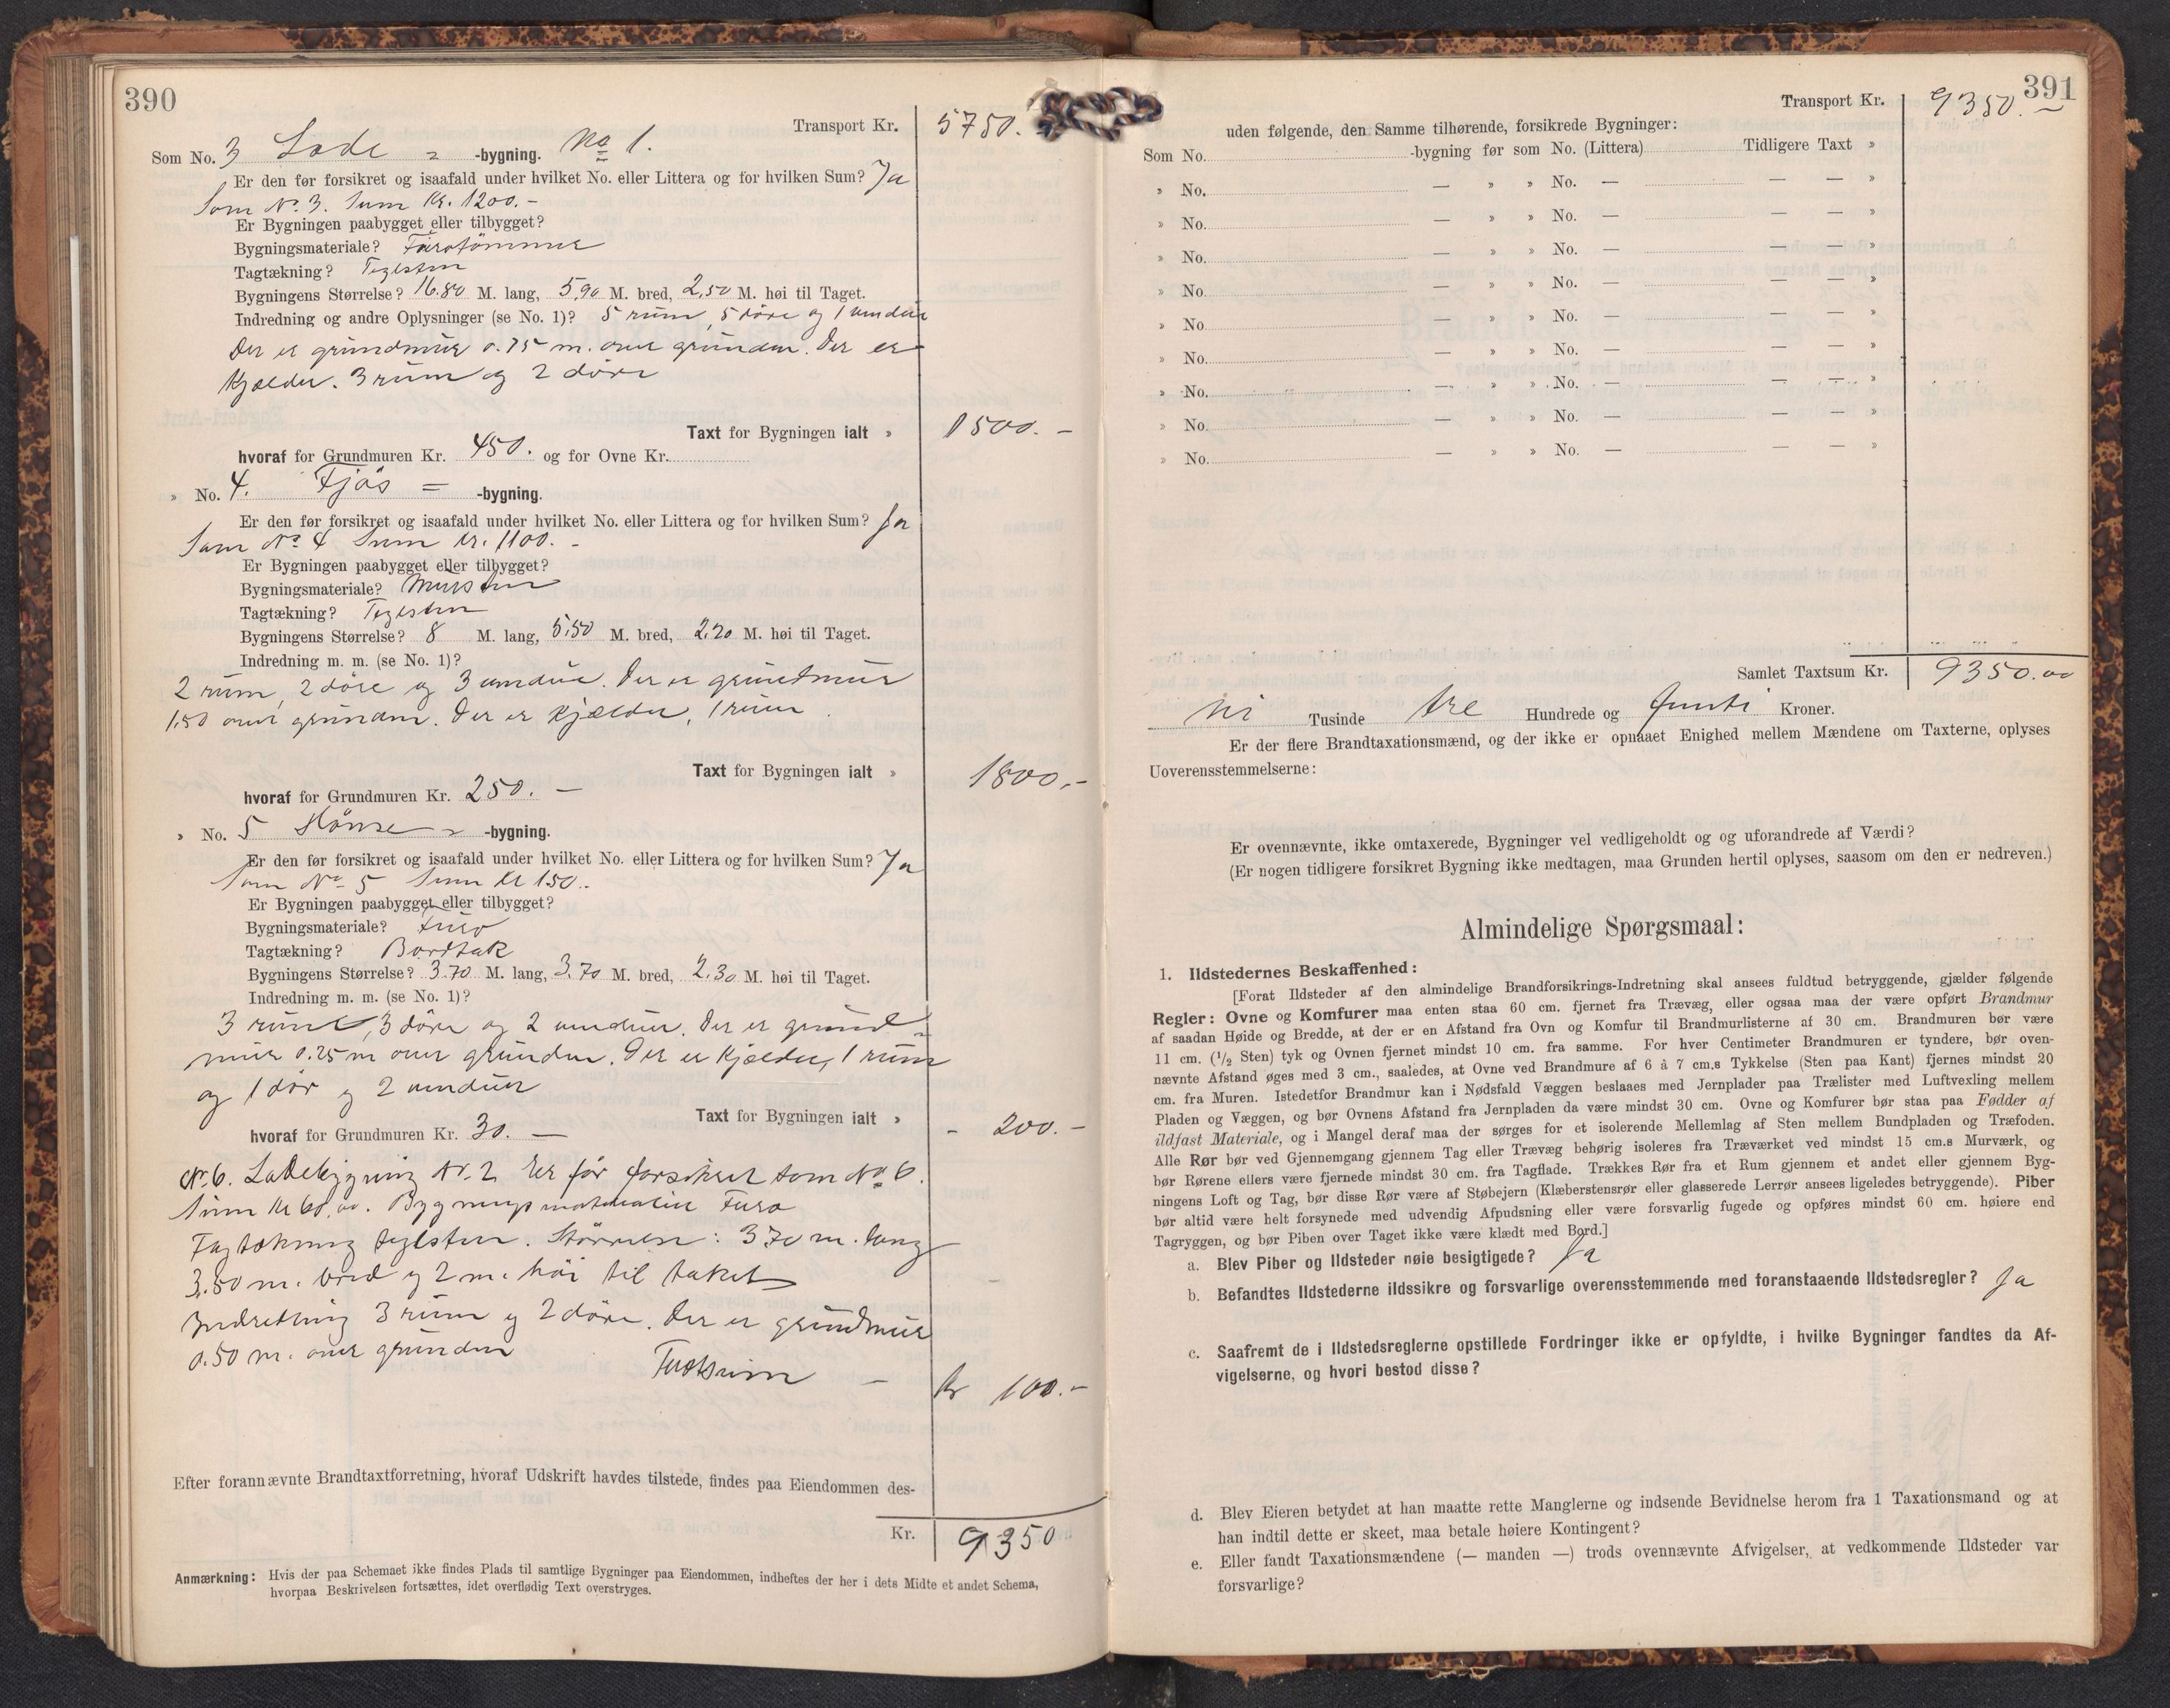 390
Transport Kr. 5750.
Som No. 3 Lade = -bygning. No 1.
Er den før forsikret og isaafald under hvilket No. eller Littera og for hvilken Sum? Ja
Som No. 3. Sum Kr. 1200.-
Er Bygningen paabygget eller tilbygget?
Bygningsmateriale? Furotømmer
Tagtækning? Teglsten
Bygningens Størrelse? 16.80 M. lang, 5,90 M. bred, 2,50 M. høi til Taget.
Indredning og andre Oplysninger (se No. 1)? 5 rum, 5 döre og 1 vindue
Der er grundmur 0.75 m. over grunden. Der er
Kjælder. 3 rum og 2 döre
Taxt for Bygningen ialt » 1500.-
hvoraf for Grundmuren Kr. 450. og for Ovne Kr.
» No. 4. Fjös = -bygning.
Er den før forsikret og isaafald under hvilket No. eller Littera og for hvilken Sum? Ja
Som No 4 Sum Kr. 1100.-
Er Bygningen paabygget eller tilbygget?
Bygningsmateriale? Mursten
Tagtækning? Teglsten
Bygningens Størrelse? 8 M. lang, 5,50 M. bred, 2.20 M. høi til Taget.
Indredning m. m. (se No. 1)?
2 rum, 2 döre og 3 vinduer. Der er grundmur
1.50 over grunden. Der er Kjælder, 1 rum
Taxt for Bygningen ialt » 1800.-
hvoraf for Grundmuren Kr. 250.-
» No. 5 Hönse = -bygning.
Er den før forsikret og isaafald under hvilket No. eller Littera og for hvilken Sum? Ja
Som No 5 Sum Kr 150.
Er Bygningen paabygget eller tilbygget?
Bygningsmateriale? Furo
Tagtækning? Bordtak
Bygningens Størrelse? 3.70 M. lang, 3.70 M. bred, 2.30 M. høi til Taget.
Indredning m. m. (se No. 1)?
3 rum, 3 döre og 2 vinduer. Der er grund-
mur 0.25 m over grunden. Der er Kjælder, 1 rum
og 1 dör og 2 vinduer
Taxt for Bygningen ialt » - 200.-
hvoraf for Grundmuren Kr. 30.-
Nr. 6. Ladebygning Nr. 2 Er för forsikret som No 6.
Sum Kr 60,00. Bygningsmateriale Furo
Tagtækning teglsten. Størrelse: 370 m. lang
3.50 m. bred og 2 m. höi til taket
Indretning 3 rum og 2 döre. Der er grundmur
0.50 m. over grunden
Taxtsum - Kr 100.-
Efter forannævnte Brandtaxtforretning, hvoraf Udskrift havdes tilstede, findes paa Eiendommen des-
Kr. 9350
Anmærkning: Hvis der paa Schemaet ikke findes Plads til samtlige Bygninger paa Eiendommen, indheftes der her i dets Midte et andet Schema,
hvorpaa Beskrivelsen fortsættes, idet overflødig Text overstryges.
391
Transport Kr. 9350.-
uden følgende, den Samme tilhørende, forsikrede Bygninger:
Som No. -bygning før som No. (Littera) Tidligere Taxt »
» No. — » » No. — — — »
» No. — » » No. — — — »
» No. — » » No. — — — »
» No. — » » No. — — — »
» No. — » » No. — — — »
» No. — » » No. — — — »
» No. — » » No. — — — »
» No. — » » No. — — — »
» No. — » » No. — — — »
Samlet Taxtsum Kr. 9350.00
Ni Tusinde tre Hundrede og femti Kroner.
Er der flere Brandtaxationsmænd, og der ikke er opnaaet Enighed mellem Mændene om Taxterne, oplyses
Uoverensstemmelserne:
Er ovennævnte, ikke omtaxerede, Bygninger vel vedligeholdt og og uforandrede af Værdi?
(Er nogen tidligere forsikret Bygning ikke medtagen, maa Grunden hertil oplyses, saasom om den er nedreven.)
Almindelige Spørgsmaal:
1. Ildstedernes Beskaffenhed:
[Forat Ildsteder af den almindelige Brandforsikrings-Indretning skal ansees fuldtud betryggende, gjælder følgende
Regler: Ovne og Komfurer maa enten staa 60 cm. fjernet fra Trævæg, eller ogsaa maa der være opført Brandmur
af saadan Høide og Bredde, at der er en Afstand fra Ovn og Komfur til Brandmurlisterne af 30 cm. Brandmuren bør være
11 cm. (1/2 Sten) tyk og Ovnen fjernet mindst 10 cm. fra samme. For hver Centimeter Brandmuren er tyndere, bør oven-
nævnte Afstand øges med 3 cm., saaledes, at Ovne ved Brandmure af 6 à 7 cm.s Tykkelse (Sten paa Kant) fjernes mindst 20
cm. fra Muren. Istedetfor Brandmur kan i Nødsfald Væggen beslaaes med Jernplader paa Trælister med Luftvexling mellem
Pladen og Væggen, og bør Ovnens Afstand fra Jernpladen da være mindst 30 cm. Ovne og Komfurer bør staa paa Fødder af
ildfast Materiale, og i Mangel deraf maa der sørges for et isolerende Mellemlag af Sten mellem Bundpladen og Træfoden.
Alle Rør bør ved Gjennemgang gjennem Tag eller Trævæg behørig isoleres fra Træværket ved mindst 15 cm.s Murværk, og
bør Rørene ellers være fjernede mindst 30 cm. fra Tagflade. Trækkes Rør fra et Rum gjennem et andet eller gjennem Byg-
ningens Loft og Tag, bør disse Rør være af Støbejern (Klæberstensrør eller glasserede Lerrør ansees ligeledes betryggende). Piber
bør altid være helt forsynede med udvendig Afpudsning eller være forsvarlig fugede og opføres mindst 60 cm. høiere end
Tagryggen, og bør Piben over Taget ikke være klædt med Bord.]
a. Blev Piber og Ildsteder nøie besigtigede? Ja
b. Befandtes Ildstederne ildssikre og forsvarlige overensstemmende med foranstaaende Ildstedsregler? Ja
c. Saafremt de i Ildstedsreglerne opstillede Fordringer ikke er opfyldte, i hvilke Bygninger fandtes da Af-
vigelserne, og hvori bestod disse?
d. Blev Eieren betydet at han maatte rette Manglerne og indsende Bevidnelse herom fra 1 Taxationsmand og at
han indtil dette er skeet, maa betale høiere Kontingent?
e. Eller fandt Taxationsmændene (— manden —) trods ovennævnte Afvigelser, at vedkommende Ildsteder var
forsvarlige?